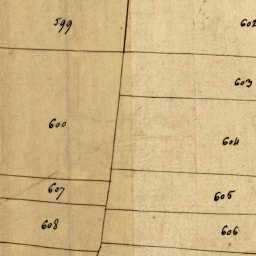 599
602
603
600
604
607
605
608
606